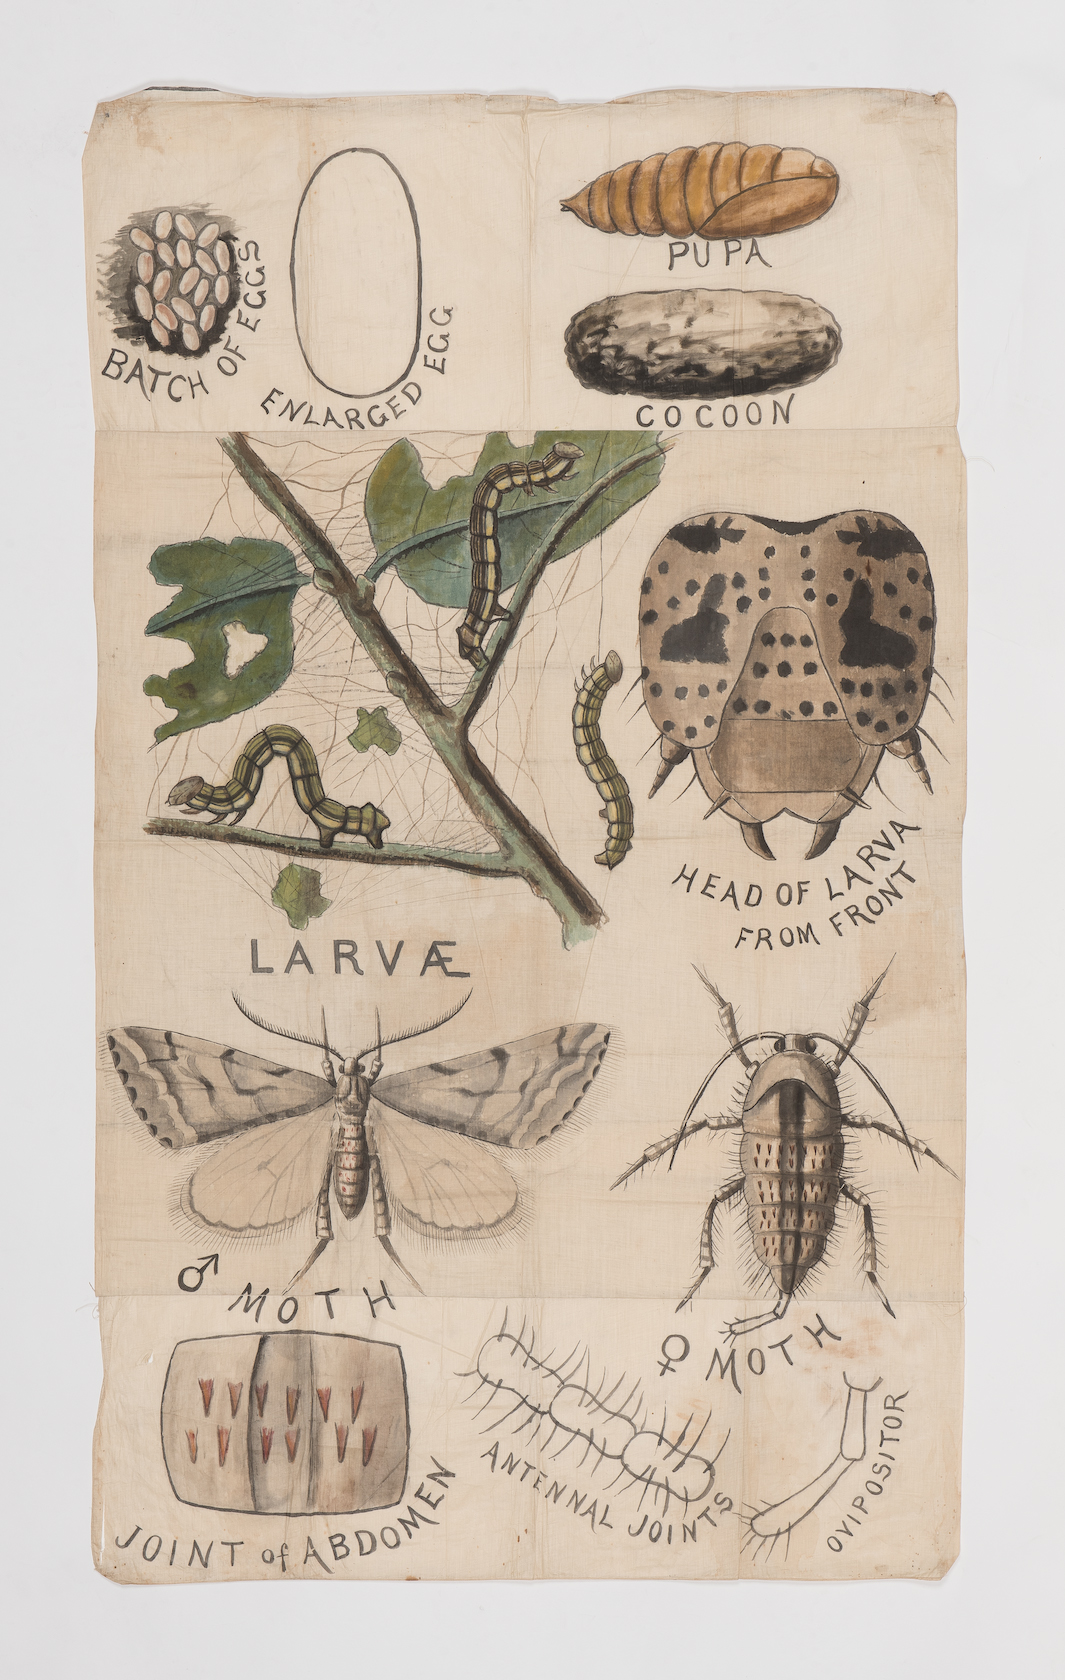 BATCH OF EGGS
ENLARGED EGG
PUPA
COCOON
LARVÆ
HEAD OF LARVA
FROM FRONT
♂ MOTH
♀ MOTH
JOINT of ABDOMEN
ANTENNAL JOINTS
OVIPOSITOR